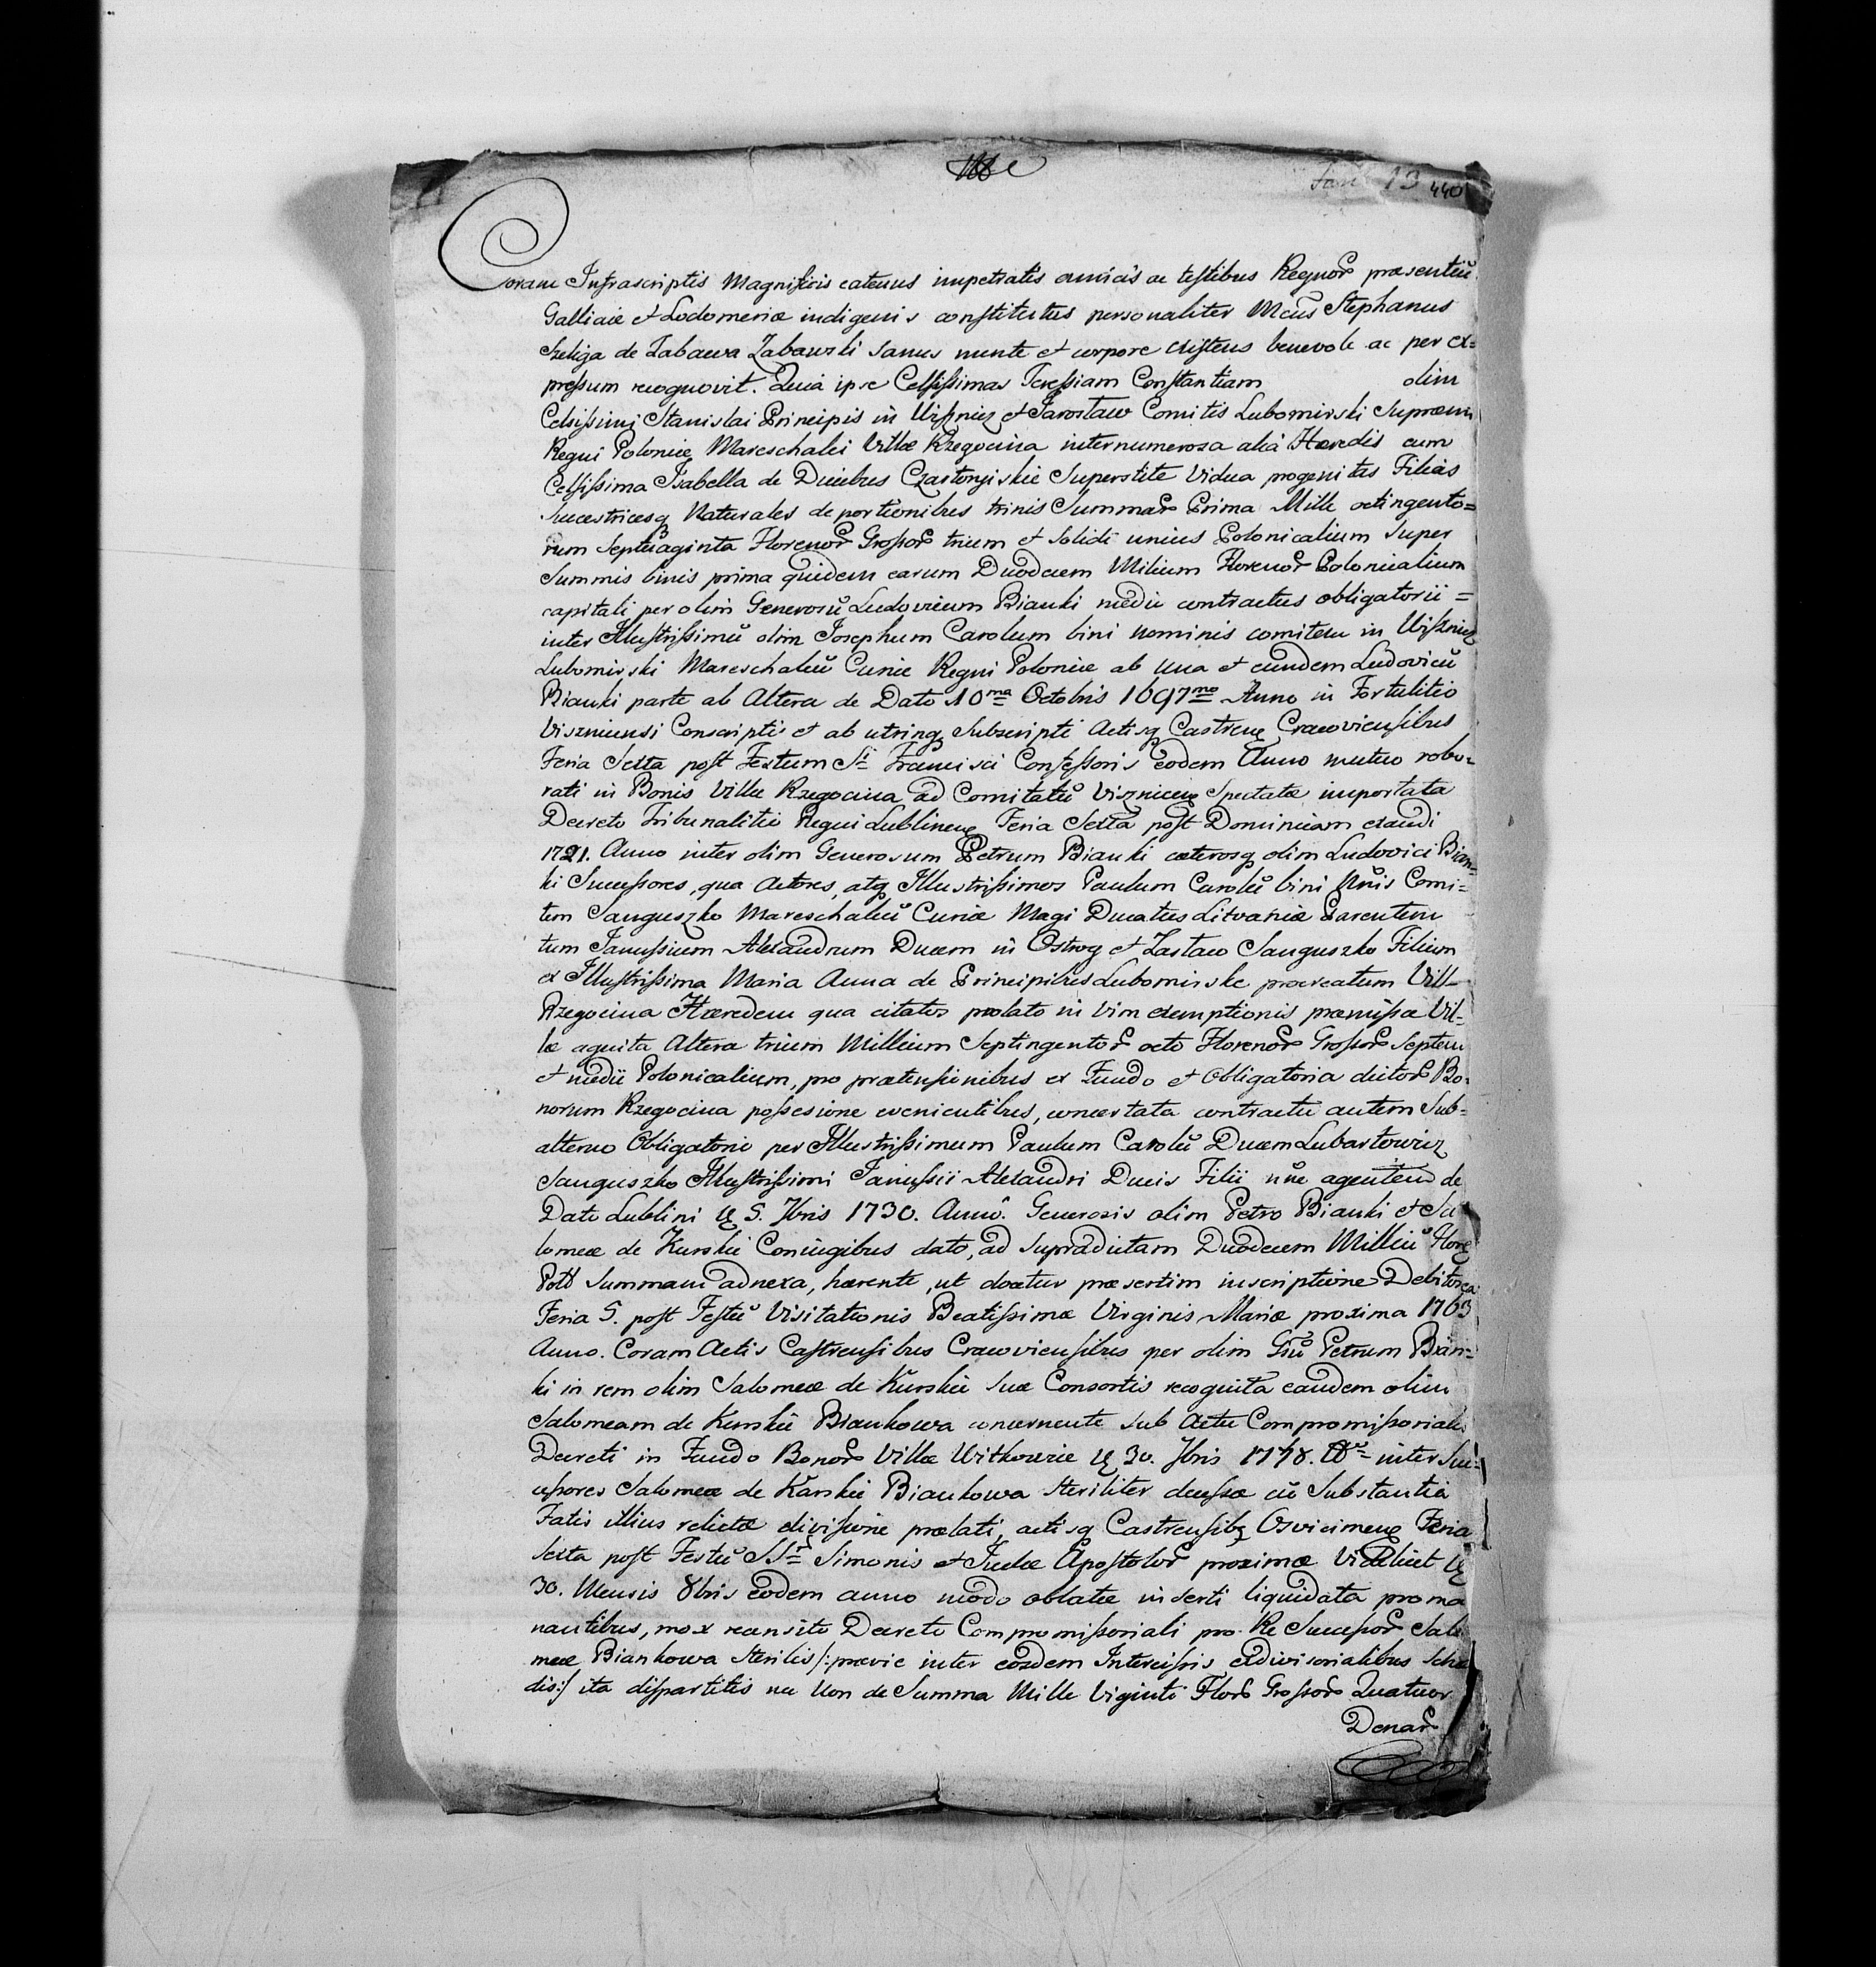 440
Coram Infrascriptis Magnificis eatenus impetratis amicis ac testibus Regnor präsentiū
Galliciæ et Lodomeriæ indigenis constitutus personaliter Mcus Stephanus
Szeliga de Zabawa Zabawski sanus mente et corpore existens benevole ac per ex=
pressum recognovit. Quia ipse Celsissimas Teressiam Constantiam olim
Celsissimi Stanislai Principis in Wisznicz et Jarosław Comitis Lubomirski Supremi
Regni Poloniæ Mareschalci Villæ Rzegocina internumerosa alia Hæredis cum
Celsissima Isabella de Ducibus Czartoryiskie Superstite Vidua progenitas Filias
Sucestricesq Naturales de portionibus trinis Summar Prima Mille octingento=
rum Septuaginta Florenor Grossor trium et Solidi unius Polonicalium super
Summis binis prima quidem earum Duodecem Milium Florenor Polonicalium
capitali per olim Generosū Ludovicum Bianki medio contractus obligatorii =
inter Illustrissimū olim Josephum Carolum bini nominis comitem in Wisznicz
Lubomirski Mareschalcū Curiæ Regni Poloniæ ab una et eundem Ludovicū
Bianki parte ab Altera de Dato 10ma Octobris 1697mo Anno in Fortalitio
Viszniensi Conscripti et ab utrinq Subscripti Actisq Castren Cracoviensibus
Feria Sexta post Festum Sti Francisci Confessoris eodem Anno mutuo robo=
rati in Bonis Villæ Rzegocina ad Comitatū Visznicen Spectatæ importata
Decreto Tribunalitio Regni Lublinen Feria Sexta post Dominicam exaudi
1721. Anno inter olim Generosum Petrum Bianki cæterosq olim Ludovici Bian=
ki Sucessores, qua Actores, atq Illustrissimos Paulum Carolū bini Nnis Comi=
tem Sanguszko Mareschalcū Curiæ Magi Ducatus Litvaniæ Parentem
tum Janussium Alexandrum Ducem in Ostrog et Zasław Sanguszko Filium
ex Illustrissima Maria Anna de Principibus Lubomirske procreatum Vill
Rzegocina Hæredem qua citatos prolato in vim exemptionis præmissæ Vil=
læ aquita Altera trium Millium Septingentor octo Florenor Grossor Septem
et medii Polonicalium, pro prætensionibus ex Fundo et Obligatoria dictor Bo=
norum Rzegocina possesione evenientibus, concertata contractu autem Sub=
alterno Obligatorio per Illustrissimum Paulum Carolū Ducem Lubartowicz
Sanguszko Illustrissimi Janussii Alexandri Ducis Filii nne agentem de
Dato Lublini 5. 7bris 1730. Anno. Generosis olim Petro Bianki et Sa
lomeæ de Kurskie Coniugibus dato, ad supradictam Duodecem Milliū Flor
Poll Summam adnexa, hærente, ut docetur præsertim inscriptione Debitorea
Feria 5. post Festū Visitationis Beatissimæ Virginis Mariæ proxima 1763
Anno. Coram Actis Castrensibus Cracoviensibus per olim Grū Petrum Bian=
ki in rem olim Salomeæ de Kurskie suæ Consortis recognita eandem olim
Salomeam de Kurskie Biankowa concernente sub Actu Compromissoriali
Decreti in Fundo Bonor Villæ Witkowice 30. 7bris 1778. inter Suc=
cessores Salomeæ de Karskie Biankowa steriliter decessæ cū Substantia
Fatis illius relictæ divisione prolati, actisq Castrensib Osviecimen Feria
Sexta post Festū SSr Simonis et Judæ Apostolor proximæ Videlicet
30. Mensis 8bris eodem anno modo oblatæ inserti liquidata proma
nantibus, mox reansito Decreto Compromissoriali pro Re Sucessor Salo
meæ Biankowa sterilis /: prævie inter eosdem Intercisis exdivisorialibus Sche
dis:/ ita dispartitis ne Non de Summa Mille Viginti Flor Grossor Quatuor
Denar